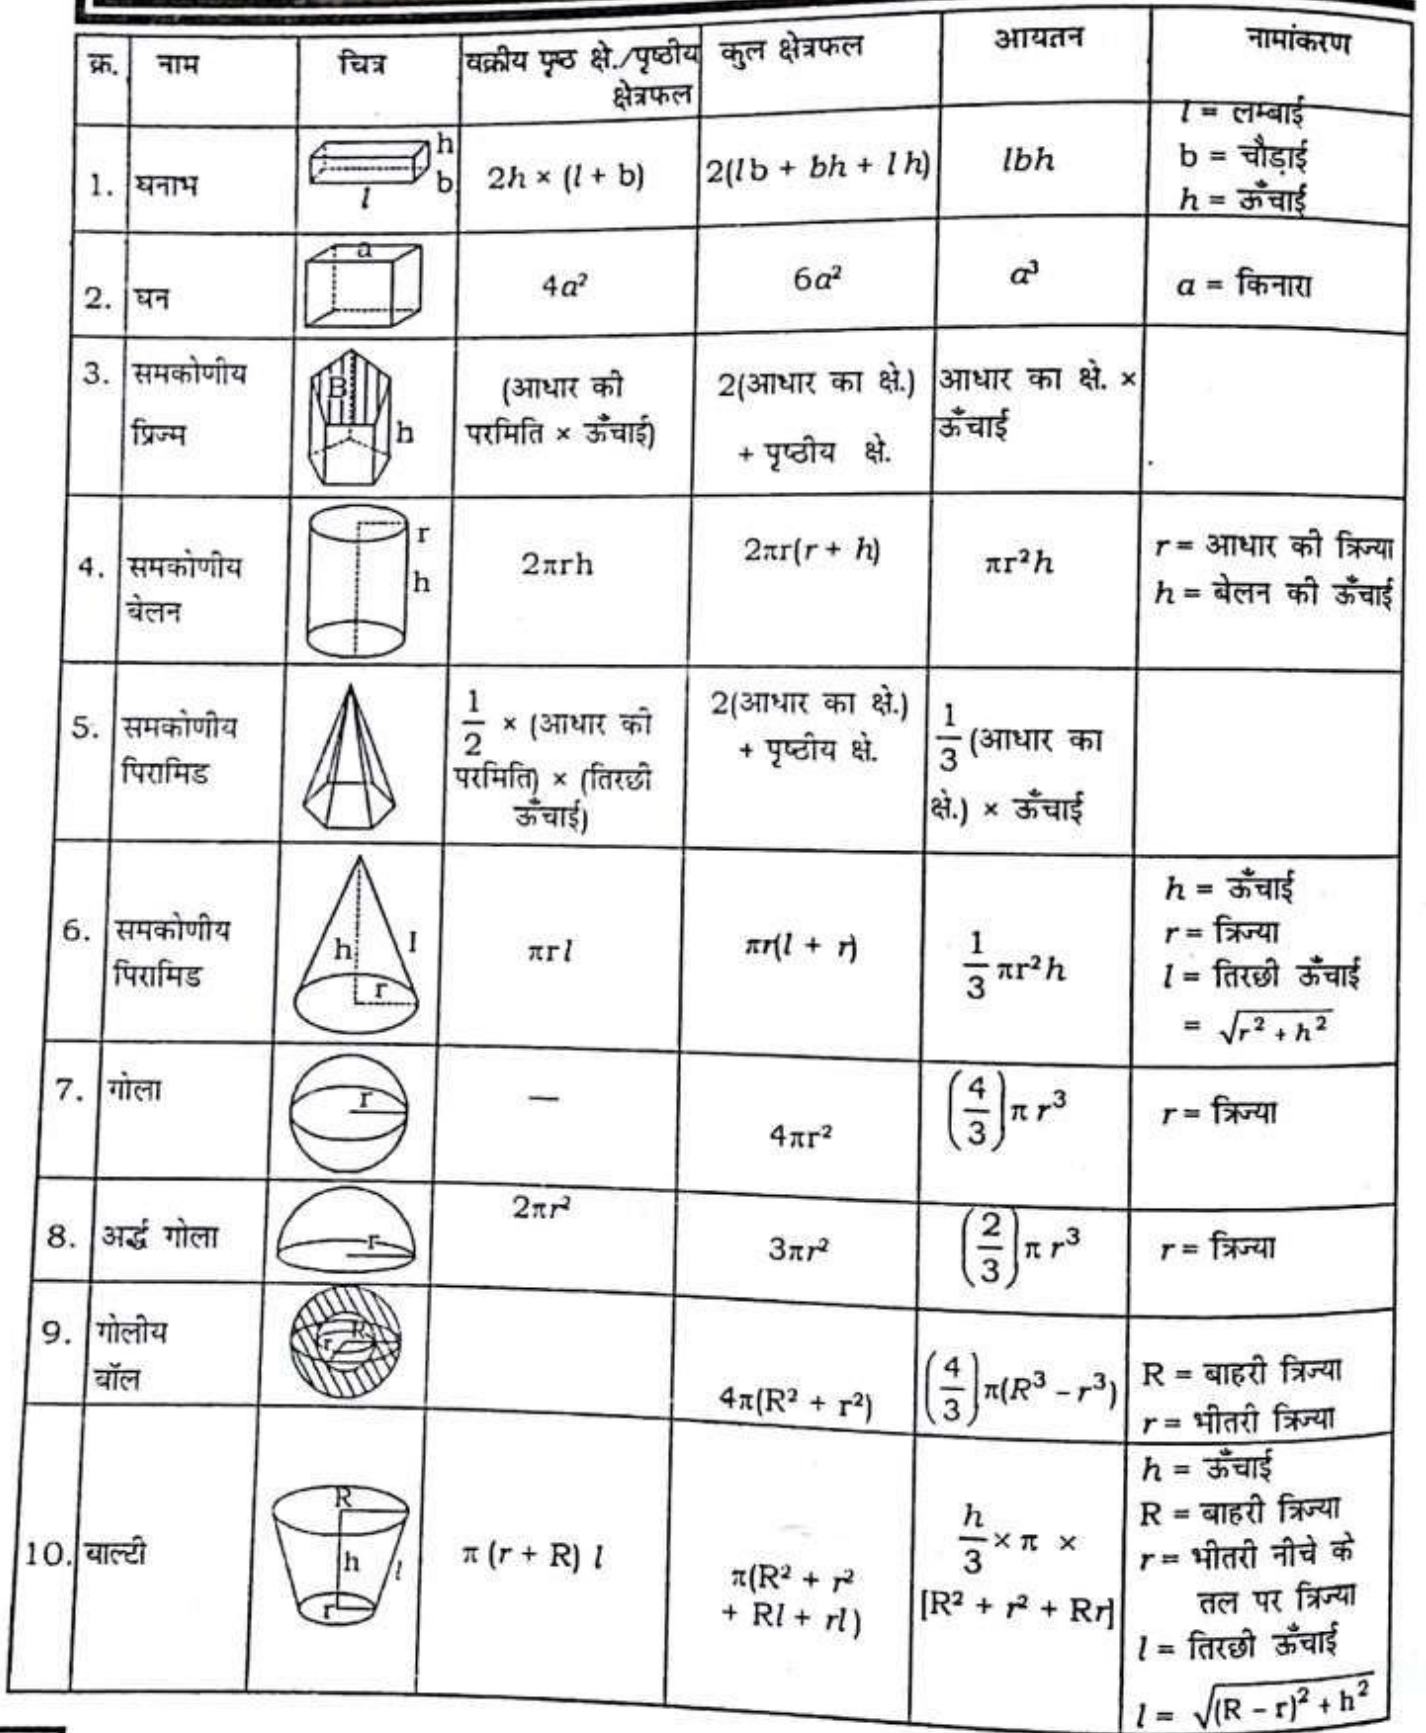 क्र. नाम चित्र वक्रीय पृष्ठ क्षे./पृष्ठीय क्षेत्रफल कुल क्षेत्रफल आयतन नामांकरण
1. घनाभ h b l 2h × (l + b) 2(lb + bh + lh) lbh l = लम्बाई
b = चौड़ाई
h = ऊँचाई
2. घन a 4a² 6a² a³ a = किनारा
3. समकोणीय
प्रिज्म B h (आधार की
परमिति × ऊँचाई) 2(आधार का क्षे.)
+ पृष्ठीय क्षे. आधार का क्षे. ×
ऊँचाई
4. समकोणीय
बेलन r h 2πrh 2πr(r + h) πr²h r = आधार की त्रिज्या
h = बेलन की ऊँचाई
5. समकोणीय
पिरामिड 1/2 × (आधार की
परमिति) × (तिरछी
ऊँचाई) 2(आधार का क्षे.)
+ पृष्ठीय क्षे. 1/3 (आधार का
क्षे.) × ऊँचाई
6. समकोणीय
पिरामिड h l r πrl πr(l + r) 1/3 πr²h h = ऊँचाई
r = त्रिज्या
l = तिरछी ऊँचाई
= √(r² + h²)
7. गोला r — 4πr² (4/3)π r³ r = त्रिज्या
8. अर्द्ध गोला r 2πr² 3πr² (2/3)π r³ r = त्रिज्या
9. गोलीय
बॉल R r 4π(R² + r²) (4/3)π(R³ – r³) R = बाहरी त्रिज्या
r = भीतरी त्रिज्या
10. बाल्टी R h l r π (r + R) l π(R² + r²
+ Rl + rl) h/3 × π ×
[R² + r² + Rr] h = ऊँचाई
R = बाहरी त्रिज्या
r = भीतरी नीचे के
तल पर त्रिज्या
l = तिरछी ऊँचाई
l = √((R – r)² + h²)